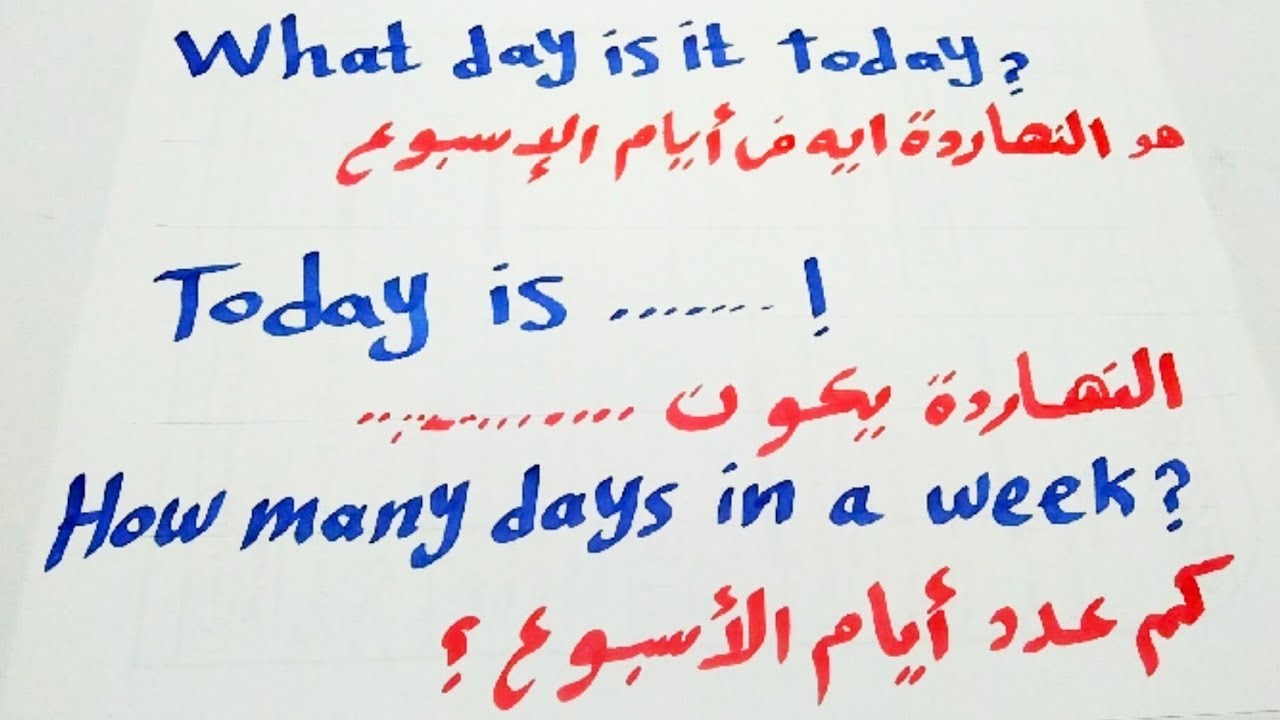 What day is it today?
هو النهاردة ايه من أيام الإسبوع
Today is ....... !
النهاردة يكون ..............
How many days in a week?
كم عدد أيام الأسبوع ؟